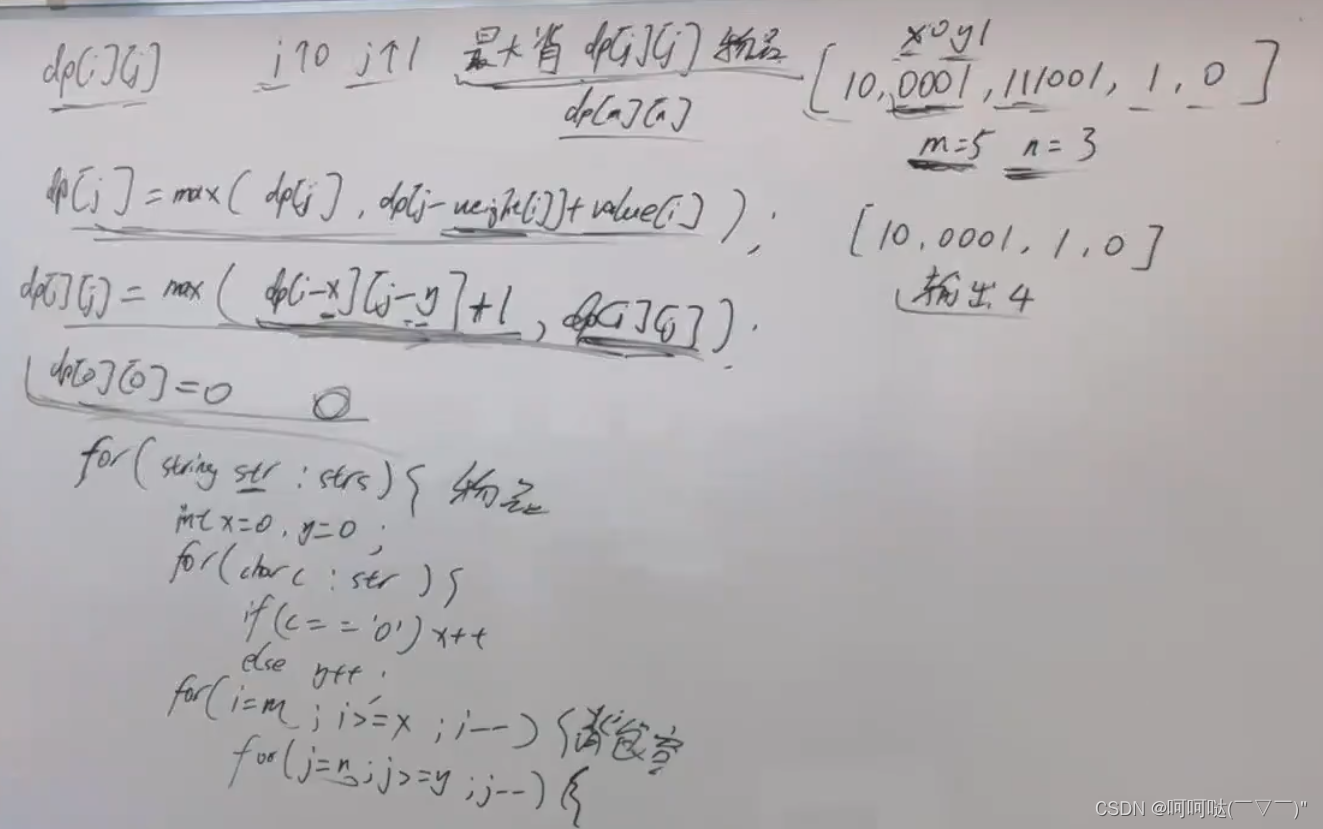 dp[i][j] i个0 j个1 最大背 dp[i][j] 物品
x0y1
[10,0001,111001,1,0]
dp[m][n]
m=5 n=3
dp[j]=max(dp[j],dp[j-weight[i]]+value[i]);
[10,0001,1,0]
dp[i][j]=max(dp[i-x][j-y]+1,dp[i][j]).
输出4
dp[0][0]=0 0
for(string str:strs){ 物品
int x=0,y=0;
for(char c:str){
if(c=='0')x++
else y++;
for(i=m;i>=x;i--){背包容
for(j=n;j>=y;j--){
CSDN @呵呵哒(￣▽￣)"